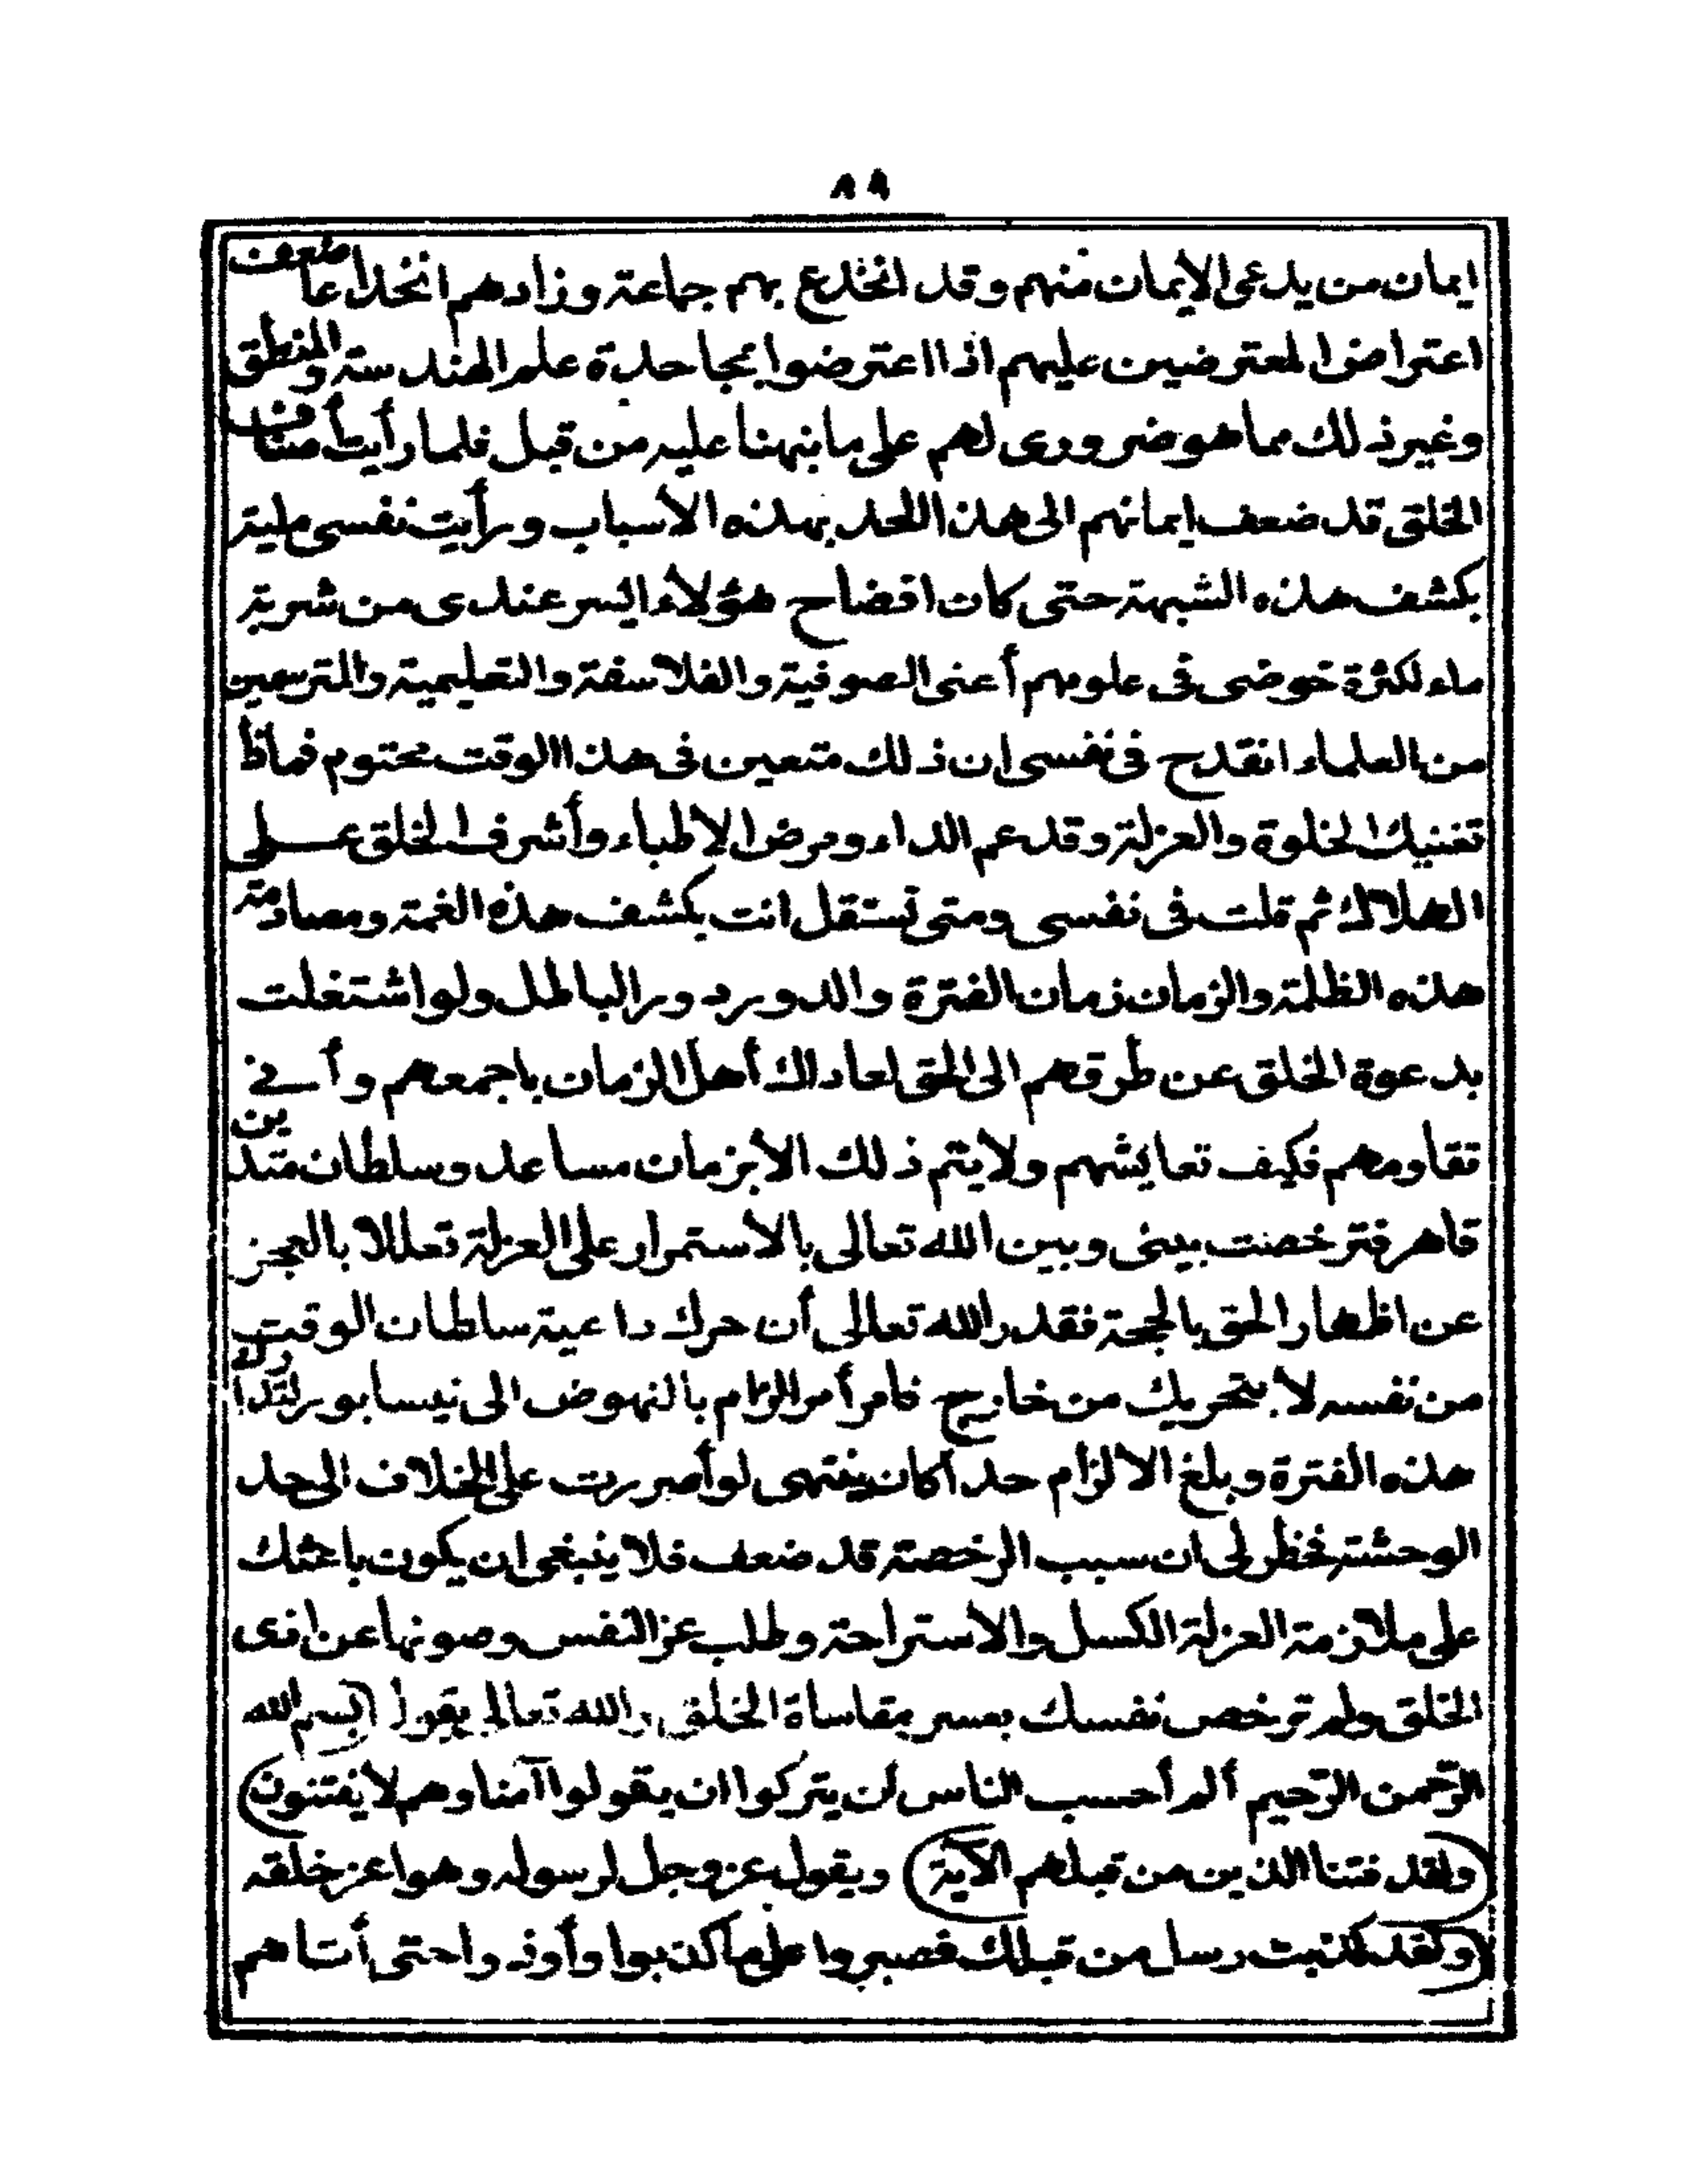 ٨٩
ايمان من يدعى الايمان منهم وقد انخدع بهم جماعة وزادهم انخداعا ضعف
اعتراض المعترضين عليهم اذا اعترضوا بمجاحدة علم الهندسة والمنطق
وغير ذلك مما هو ضرورى لهم على ما نبهنا عليه من قبل فلما رأيت أصناف
الخلق قد ضعف ايمانهم الى هذا الحد بهذه الاسباب ورأيت نفسى ملية
بكشف هذه الشبهة حتى كان افضاح هؤلاء ايسر عندى من شربة
ماء لكثرة خوضى فى علومهم أعنى الصوفية والفلاسفة والتعليمية والمترسمين
من العلماء انقدح فى نفسى ان ذلك متعين فى هذا الوقت محتوم فماذا
تغنيك الخلوة والعزلة وقد عم الداء ومرض الاطباء وأشرف الخلق عـــلى
الهلاك ثم قلت فى نفسى ومتى تستقل انت بكشف هذه الغمة ومصادمة
هذه الظلمة والزمان زمان الفترة والدور دور الباطل ولو اشتغلت
بدعوة الخلق عن طرقهم الى الحق لعاداك أهل الزمان باجمعهم وأنى
تقاومهم فكيف تعايشهم ولا يتم ذلك الا بزمان مساعد وسلطان متدين
قاهر فترخصت بينى وبين الله تعالى بالاستمرار على العزلة تعللا بالعجز
عن اظهار الحق بالحجة فقدر الله تعالى أن حرك داعية سلطان الوقت
من نفسه لا بتحريك من خارج فامر أمر الزام بالنهوض الى نيسابور لتدارك
هذه الفترة وبلغ الالزام حدا كان ينتهى لو أصررت على الخلاف الى حد
الوحشة فخطر لى ان سبب الرخصة قد ضعف فلا ينبغى ان يكون باعثك
على ملازمة العزلة الكسل والاستراحة وطلب عز النفس وصونها عن اذى
الخلق ولم ترخص نفسك بعسر مقاساة الخلق والله تعالى يقول (بسم الله
الرّحمن الرّحيم ألم أحسب الناس ان يتركوا ان يقولوا آمنا وهم لا يفتنون)
(ولقد فتنا الذين من قبلهم الآية) ويقول عز وجل لرسوله وهو اعز خلقه
(ولقد كذبت رسل من قبلك فصبروا على ما كذبوا وأوذوا حتى أتاهم